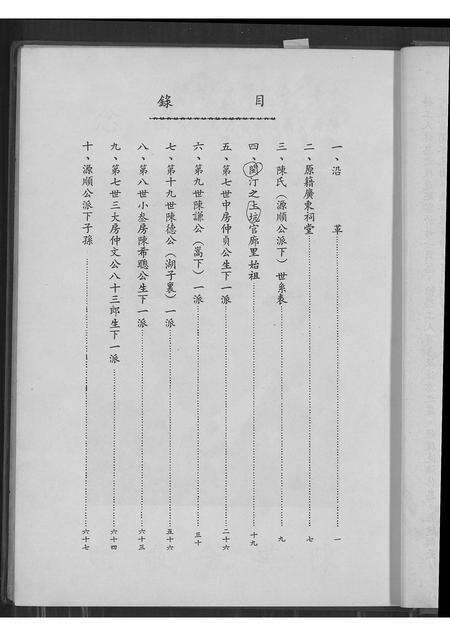 目錄
一、沿革……一
二、原籍廣東祠堂……七
三、陳氏（源順公派下）世系表……九
四、閩汀之上坑官廊里始祖……十九
五、第七世中房仲貞公生下一派……二十六
六、第九世陳謙公（嵩下）一派……三十
七、第十九世陳德公（湖子裏）一派……五十六
八、第八世小叁房陳希聰公生下一派……六十三
九、第七世三大房仲文公八十三郎生下一派……六十四
十、源順公派下子孫……六十七